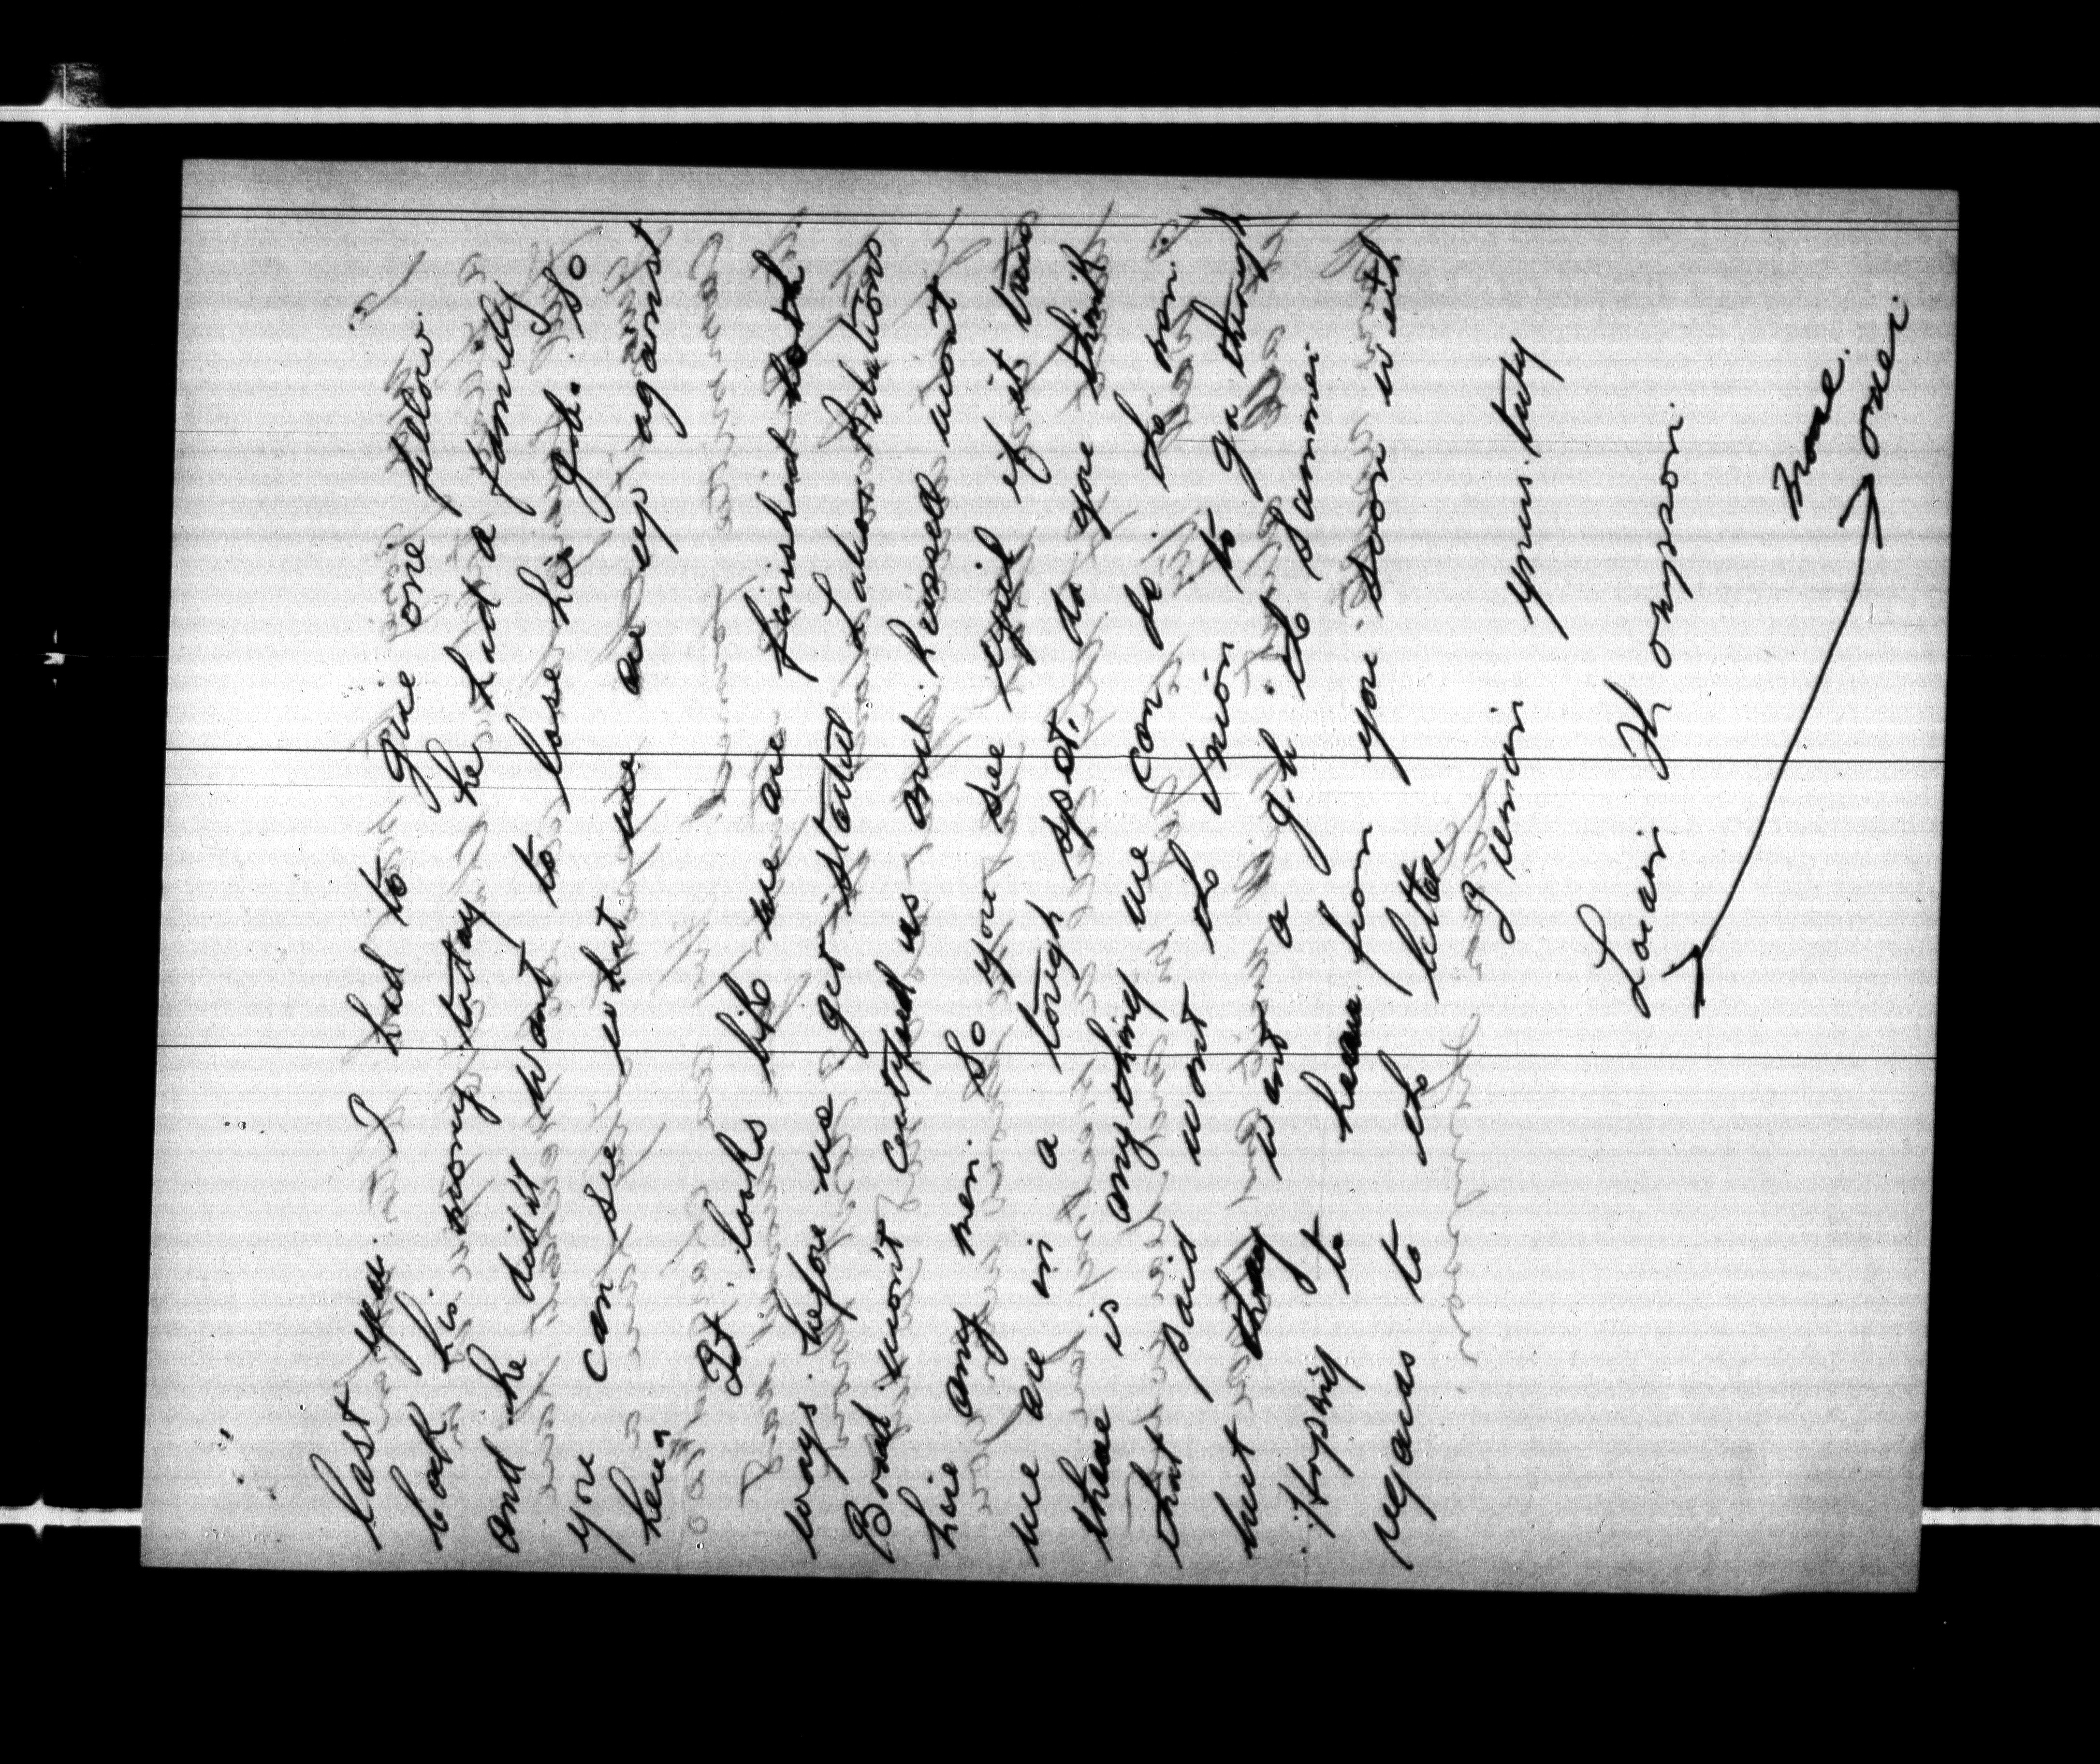 last year. I had to give one fellow.
back his mony today he had a family
and he did'nt want to lose his job. So
you can see what we are up against
here,
It looks like we are finished both
ways before we get started Labor Relations
Board won't certified us and. Russell wont
hire any men. So you see if it true
we are in a tough spot. do you think
there is anything we can do. The men.
that paid want the Union to go through
but they want a job the Summer.
Hopeing to hear from you soon with
regards to the letter.
I remain yours truly
Louis Thompson.
more.
over.